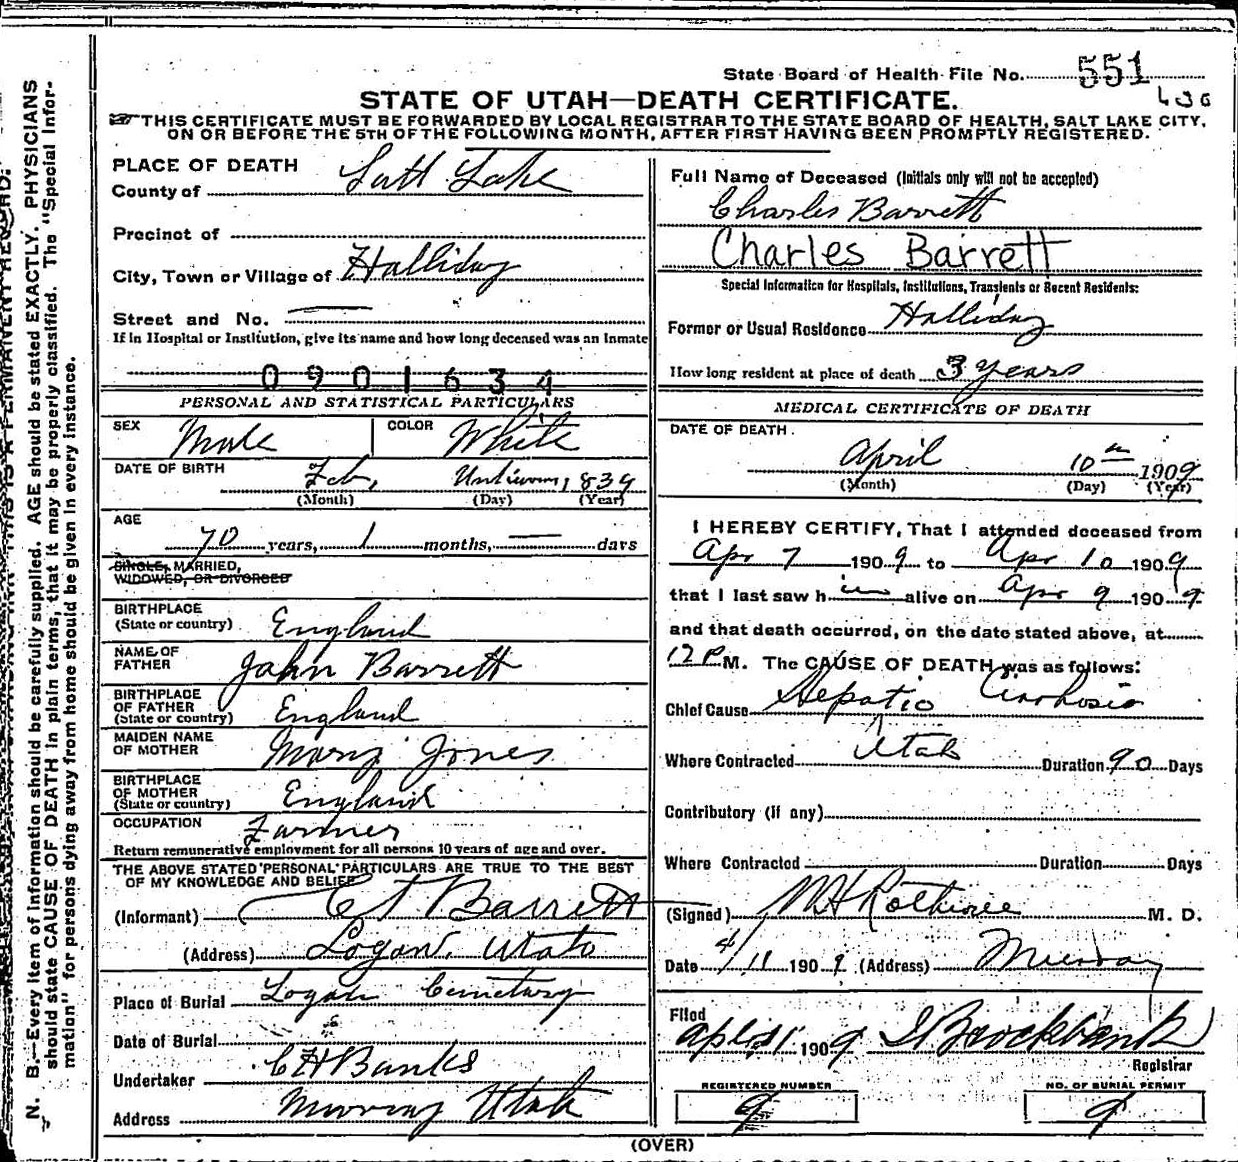 State Board of Health File No. 551
STATE OF UTAH—DEATH CERTIFICATE.
THIS CERTIFICATE MUST BE FORWARDED BY LOCAL REGISTRAR TO THE STATE BOARD OF HEALTH, SALT LAKE CITY,
ON OR BEFORE THE 5TH OF THE FOLLOWING MONTH, AFTER FIRST HAVING BEEN PROMPTLY REGISTERED.
PLACE OF DEATH
County of Salt Lake
Precinct of
City, Town or Village of Halliday
Street and No. —
If in Hospital or Institution, give its name and how long deceased was an Inmate
0901634
PERSONAL AND STATISTICAL PARTICULARS
SEX Male COLOR White
DATE OF BIRTH Feb, Unknown, 1839
(Month) (Day) (Year)
AGE
70 years, 1 months, — days
SINGLE, MARRIED,
WIDOWED, OR DIVORCED
BIRTHPLACE
(State or country) England
NAME OF
FATHER John Barrett
BIRTHPLACE
OF FATHER
(State or country) England
MAIDEN NAME
OF MOTHER Mary Jones
BIRTHPLACE
OF MOTHER
(State or country) England
OCCUPATION Farmer
Return remunerative employment for all persons 10 years of age and over.
THE ABOVE STATED PERSONAL PARTICULARS ARE TRUE TO THE BEST
OF MY KNOWLEDGE AND BELIEF
(Informant) C T Barrett
(Address) Logan, Utah
Place of Burial Logan Cemetary
Date of Burial
Undertaker C H Banks
Address Murray Utah
Full Name of Deceased (Initials only will not be accepted)
Charles Barrett
Charles Barrett
Special Information for Hospitals, Institutions, Transients or Recent Residents:
Former or Usual Residence Halliday
How long resident at place of death 3 years
MEDICAL CERTIFICATE OF DEATH
DATE OF DEATH.
April 10th 1909
(Month) (Day) (Year)
I HEREBY CERTIFY, That I attended deceased from
Apr 7 1909 to Apr 10 1909
that I last saw him alive on Apr 9 1909
and that death occurred, on the date stated above, at
12 P M. The CAUSE OF DEATH was as follows:
Chief Cause Hepatic Cirrhosis
Where Contracted Utah Duration 90 Days
Contributory (if any)
Where Contracted Duration Days
(Signed) M. D.
Date 4/11 1909 (Address) Murray
Filed
1909 Brockbank
Registrar
REGISTERED NUMBER
9
NO. OF BURIAL PERMIT
9
(OVER)
N. B.—Every item of information should be carefully supplied. AGE should be stated EXACTLY. PHYSICIANS
should state CAUSE OF DEATH in plain terms, that it may be properly classified. The "Special Infor-
mation" for persons dying away from home should be given in every instance.